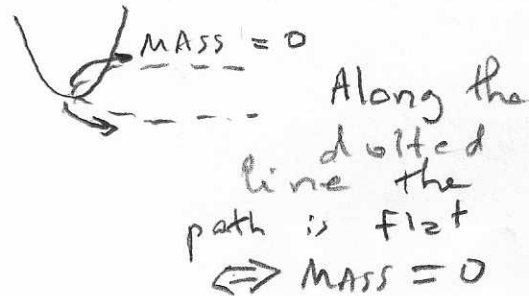 MASS = 0
Along the
dotted
line the
path is flat
⇔ MASS = 0